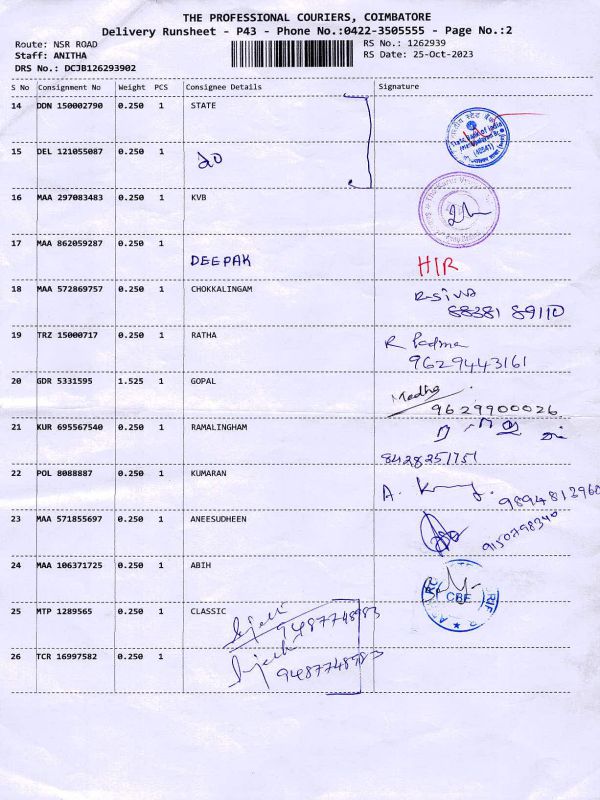 THE PROFESSIONAL COURIERS, COIMBATORE
Delivery Runsheet - P43 - Phone No.:0422-3505555 - Page No.:2
Route: NSR ROAD
Staff: ANITHA
DRS No.: DCJB126293902
RS No.: 1262939
RS Date: 25-Oct-2023
S No Consignment No Weight PCS Consignee Details Signature
14 DDN 150002790 0.250 1 STATE
State Bank of India
15 DEL 121055087 0.250 1
16 MAA 297083483 0.250 1 KVB
17 MAA 862059287 0.250 1
DEEPAK HIR
18 MAA 572869757 0.250 1 CHOKKALINGAM R-SIVA
88381 89110
19 TRZ 15000717 0.250 1 RATHA R Padma
9629443161
20 GDR 5331595 1.525 1 GOPAL Madhu
9629900026
21 KUR 695567540 0.250 1 RAMALINGHAM
8428251751
22 POL 8088887 0.250 1 KUMARAN A.
9894812960
23 MAA 571855697 0.250 1 ANEESUDHEEN
9150798340
24 MAA 106371725 0.250 1 ABIH
CBE
25 MTP 1289565 0.250 1 CLASSIC
9487748983
26 TCR 16997582 0.250 1
9487748983